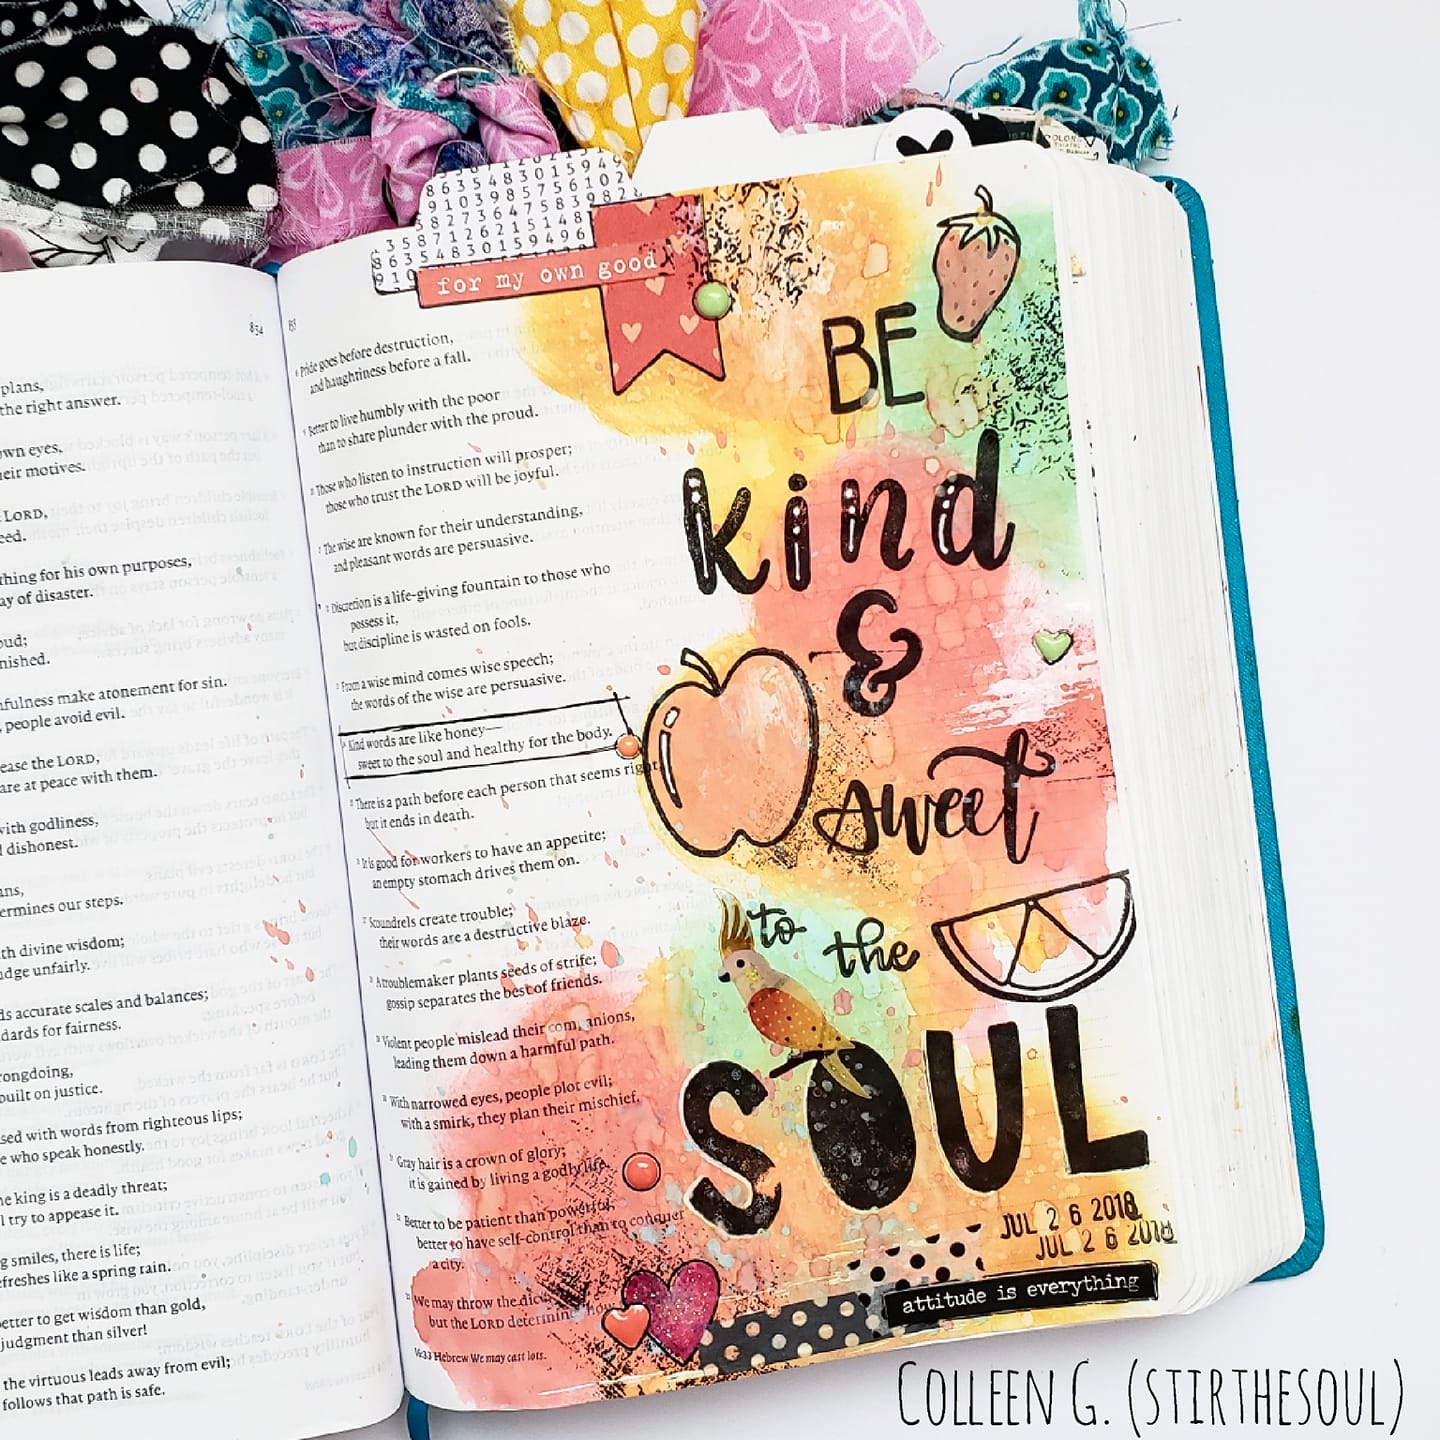 854
plans,
the right answer.
own eyes,
their motives.
LORD,
thing for his own purposes,
day of disaster.
people avoid evil.
are at peace with them.
with godliness,
dishonest.
determines our steps.
with divine wisdom;
unfairly.
accurate scales and balances;
for fairness.
built on justice.
with words from righteous lips;
who speak honestly.
king is a deadly threat;
try to appease it.
smiles, there is life;
refreshes like a spring rain.
better to get wisdom than gold,
judgment than silver!
the virtuous leads away from evil;
follows that path is safe.
for my own good
Pride goes before destruction,
and haughtiness before a fall.
Better to live humbly with the poor
than to share plunder with the proud.
Those who listen to instruction will prosper;
those who trust the LORD will be joyful.
The wise are known for their understanding,
and pleasant words are persuasive.
Discretion is a life-giving fountain to those who
possess it,
but discipline is wasted on fools.
From a wise mind comes wise speech;
the words of the wise are persuasive.
Kind words are like honey—
sweet to the soul and healthy for the body.
There is a path before each person that seems right,
but it ends in death.
It is good for workers to have an appetite;
an empty stomach drives them on.
Scoundrels create trouble;
their words are a destructive blaze.
A troublemaker plants seeds of strife;
gossip separates the best of friends.
Violent people mislead their companions,
leading them down a harmful path.
With narrowed eyes, people plot evil;
with a smirk, they plan their mischief.
Gray hair is a crown of glory;
it is gained by living a godly life.
Better to be patient than powerful;
better to have self-control than to conquer
a city.
We may throw the dice,
but the LORD determines how
16:33 Hebrew We may cast lots.
BE
kind
&
sweet
to the
SOUL
JUL 26 2018
JUL 26 2018
attitude is everything
COLLEEN G. (STIRTHESOUL)